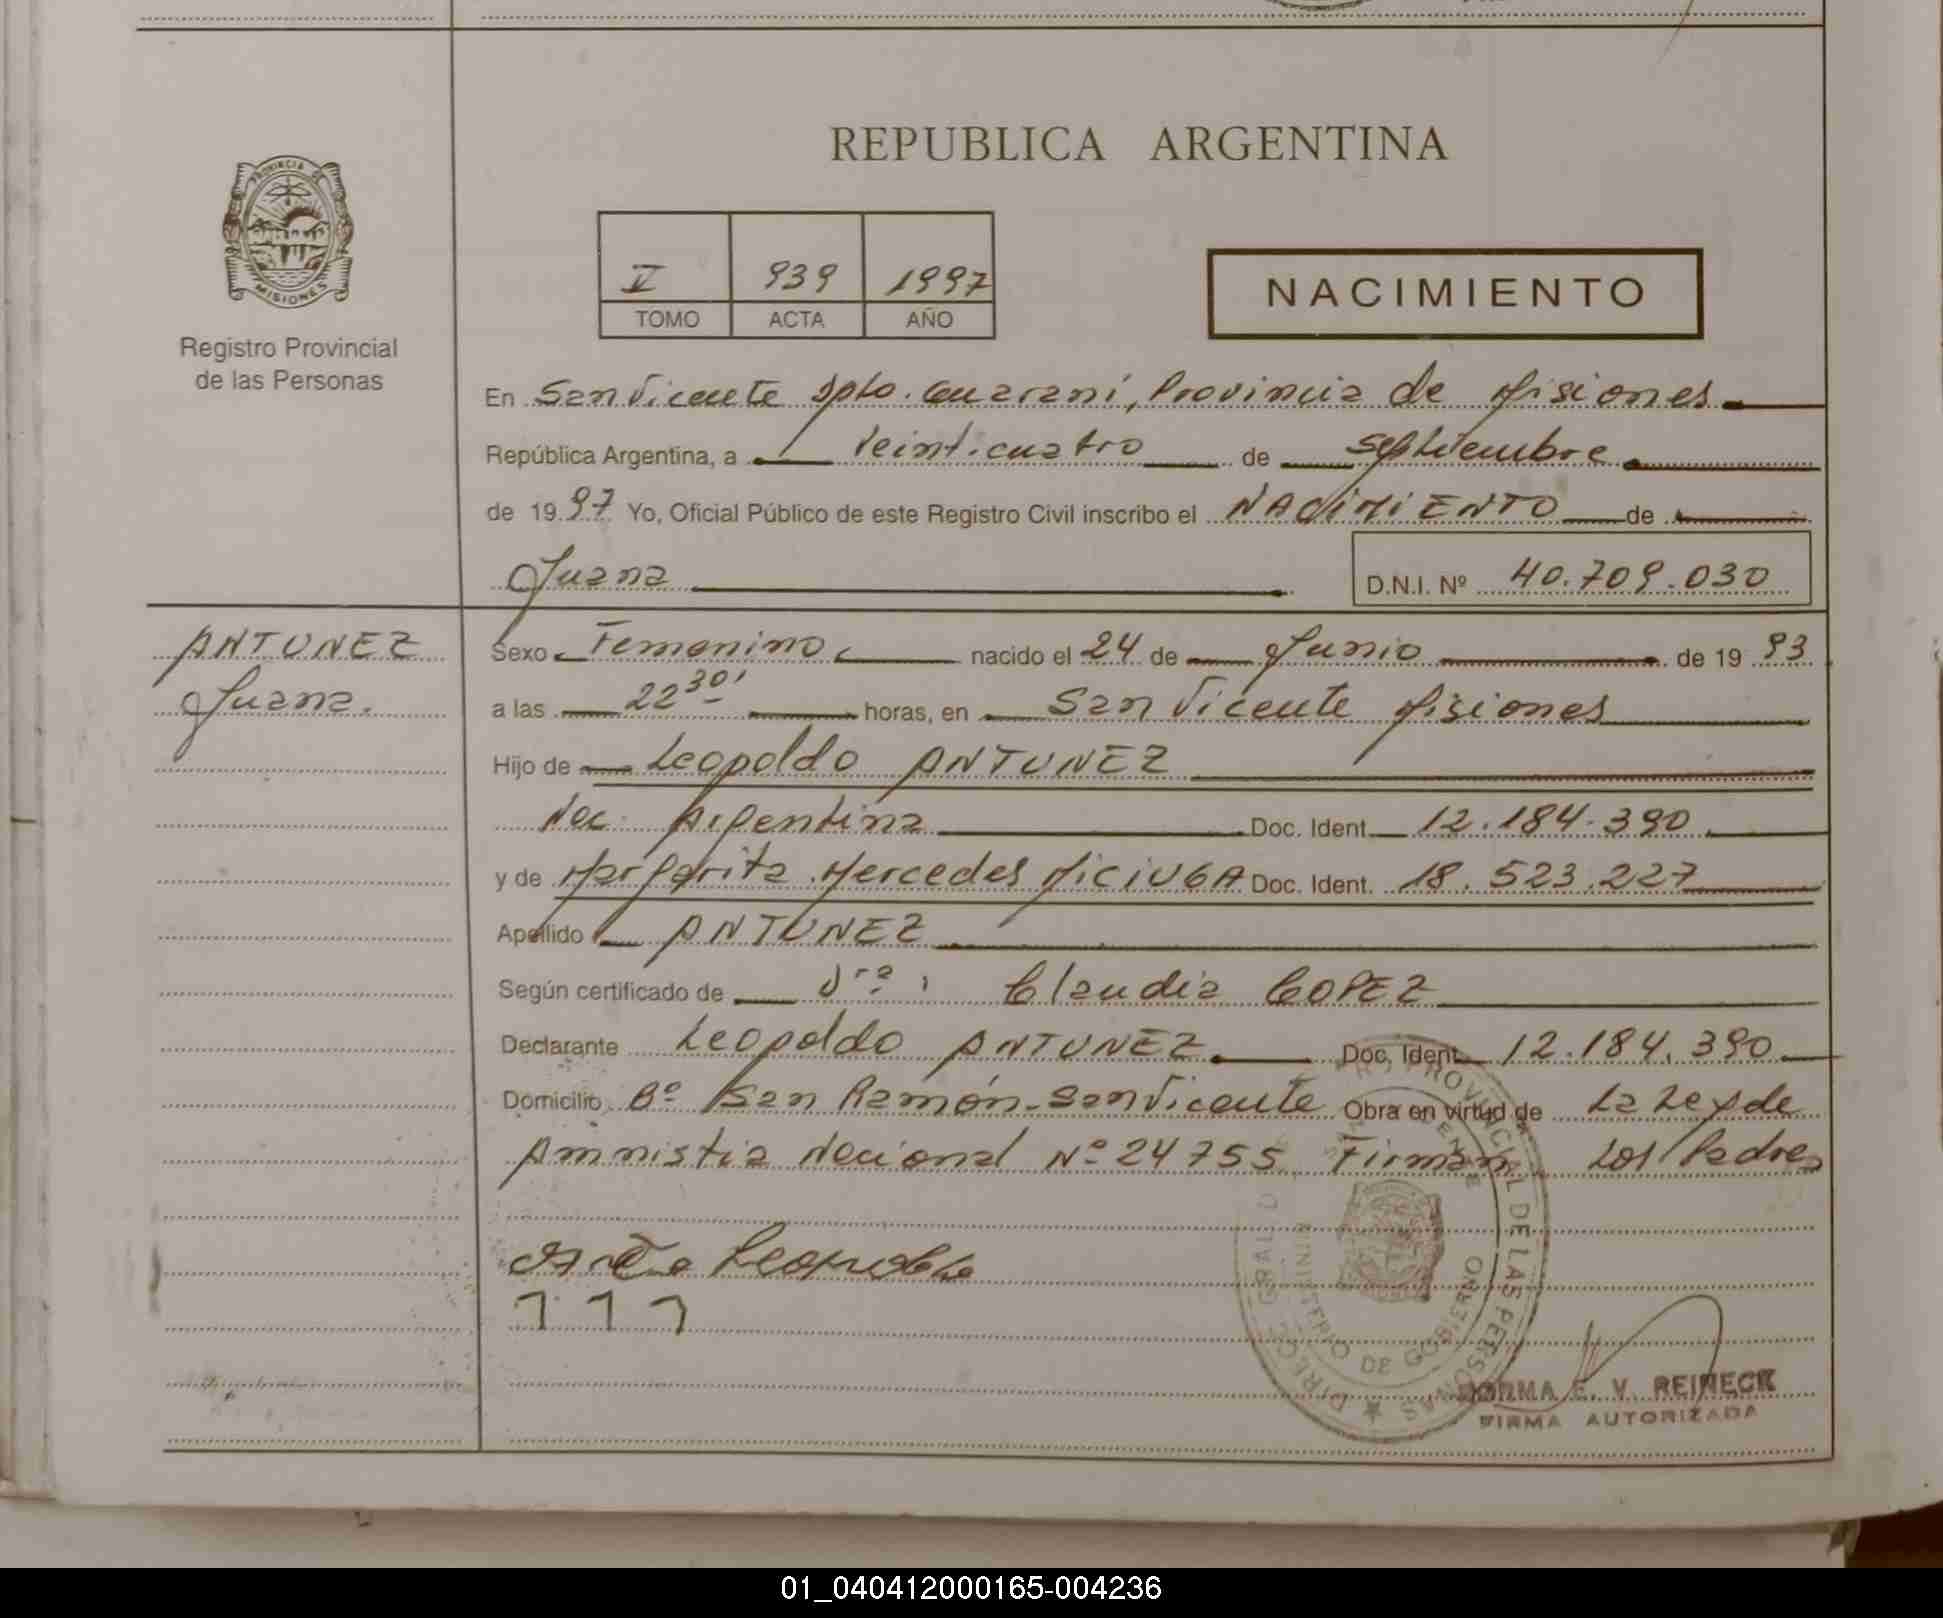 REPUBLICA ARGENTINA
PROVINCIA DE
MISIONES
Registro Provincial
de las Personas
V 939 1997
TOMO ACTA AÑO
NACIMIENTO
En San Vicente Dpto. Guaraní, Provincia de Misiones
República Argentina, a Veinticuatro de Septiembre
de 1997 Yo, Oficial Público de este Registro Civil inscribo el NACIMIENTO de
Juana D.N.I. Nº 40.709.030
ANTUNEZ
Juana.
Sexo Femenino nacido el 24 de Junio de 1993
a las 22 30' horas, en San Vicente Misiones
Hijo de Leopoldo ANTUNEZ
Nac. Argentina Doc. Ident. 12.184.390
y de Margarita Mercedes MiCiUGA Doc. Ident. 18.523.227
Apellido ANTUNEZ
Según certificado de Dra. Claudia LOPEZ
Declarante Leopoldo ANTUNEZ Doc. Ident. 12.184.390
Domicilio Bº San Ramón - San Vicente Obra en virtud de La Ley de
Amnistia Nacional Nº 24755 Firman Los Padres
Leopoldo
DIREC. GRAL. PROVINCIAL DE LAS PERSONAS
MINISTERIO DE GOBIERNO
NORMA E. V. REINECK
FIRMA AUTORIZADA
01_040412000165-004236